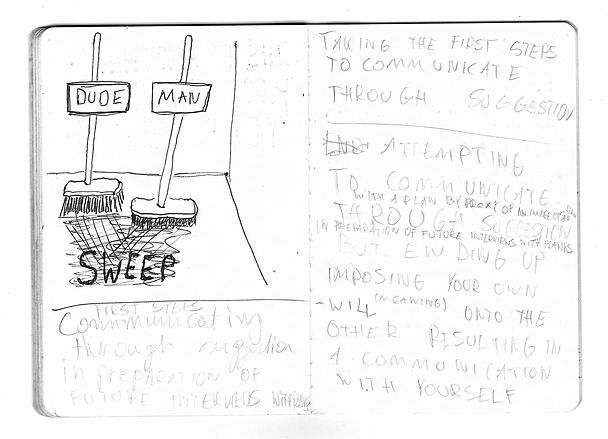 DUDE
MAN
SWEEP
FIRST STEPS
Communicating
through suggestion
in PREPARATION OF
FUTURE INTERVIEWS WITH
TAKING THE FIRST STEPS
TO COMMUNICATE
THROUGH SUGGESTION
END ATTEMPTING
TO COMMUNICATE
WITH A PLAN BY PROXY OF AN IMAGE OF
THROUGH SUGGESTION
IN PREPARATION OF FUTURE INTERVIEWS WITH PLANKS
BUT ENDING UP
IMPOSING YOUR OWN
- WILL (MEANING) ONTO THE
OTHER RESULTING IN
A COMMUNICATION
WITH YOURSELF